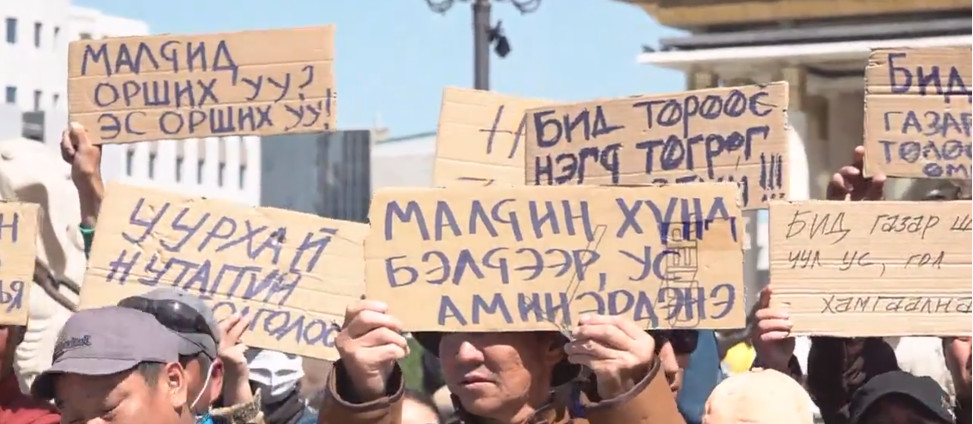 МАЛЧИД
ОРШИХ УУ?
ЭС ОРШИХ УУ!
БИД ТӨРӨӨС
НЭГЧ ТӨГРӨГ
!!!
БИД
ГАЗАР
ТӨЛӨӨ
УУРХАЙ
НУТГИЙН
МАЛЧИН ХҮНД
БЭЛЧЭЭР, УС
АМИН ЭРДЭНЭ
БИД ГАЗАР Ш
УУЛ УС, ГОЛ
ХАМГААЛНА